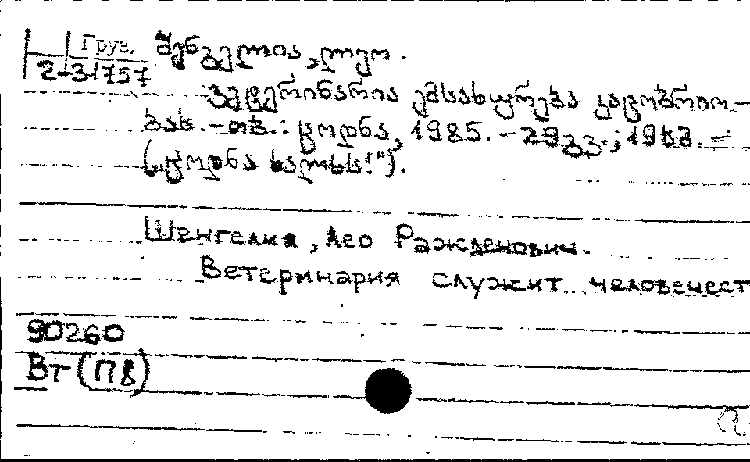 Груз. შენგელია, ლეო.
2-31757
ვეტერინარია ემსახურება კაცობრიო-
ბას. - თბ.: ცოდნა, 1985. - 29 გვ.; 19 სმ. =
(„ცოდნა ხალხს!").
Шенгелия, Лео Ражденович.
Ветеринария служит человечест
90260
Вт (П8)